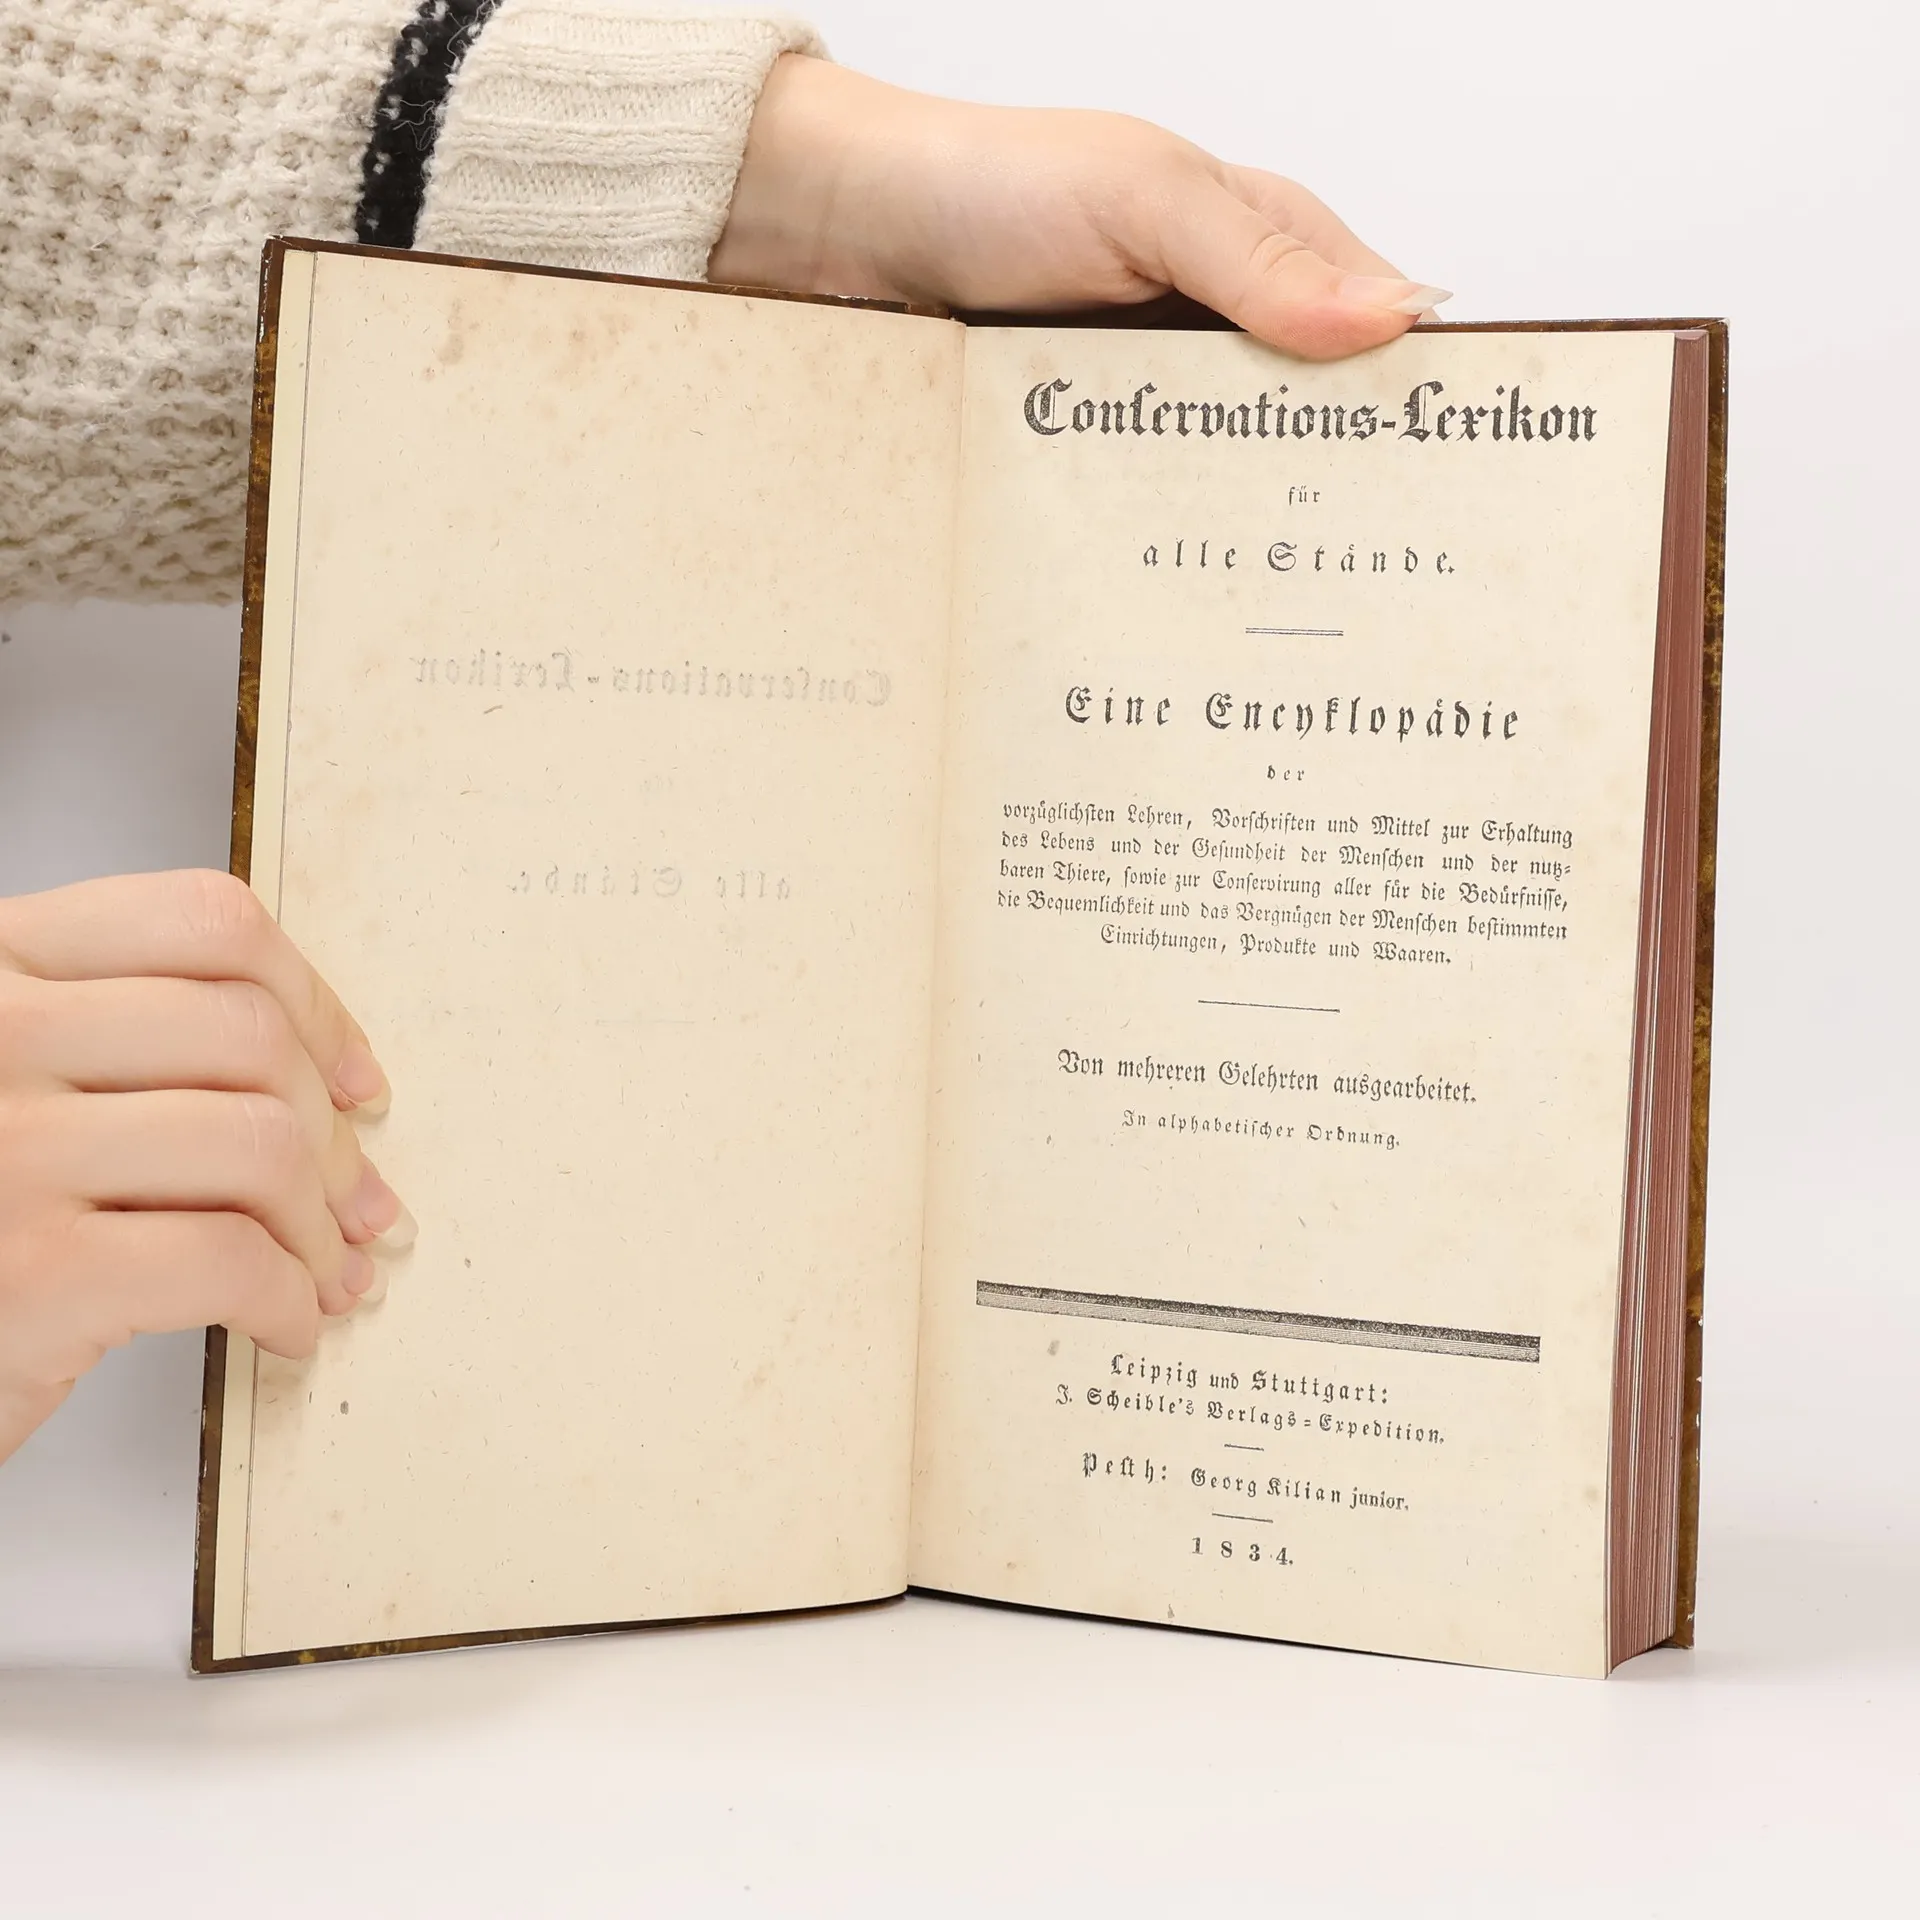 Conservations-Lexikon
für
alle Stände.
Eine Encyklopädie
der
vorzüglichsten Lehren, Vorschriften und Mittel zur Erhaltung
des Lebens und der Gesundheit der Menschen und der nutz-
baren Thiere, sowie zur Conservirung aller für die Bedürfnisse,
die Bequemlichkeit und das Vergnügen der Menschen bestimmten
Einrichtungen, Produkte und Waaren.
Von mehreren Gelehrten ausgearbeitet.
In alphabetischer Ordnung.
Leipzig und Stuttgart:
J. Scheible's Verlags-Expedition.
Pesth: Georg Kilian junior.
1834.